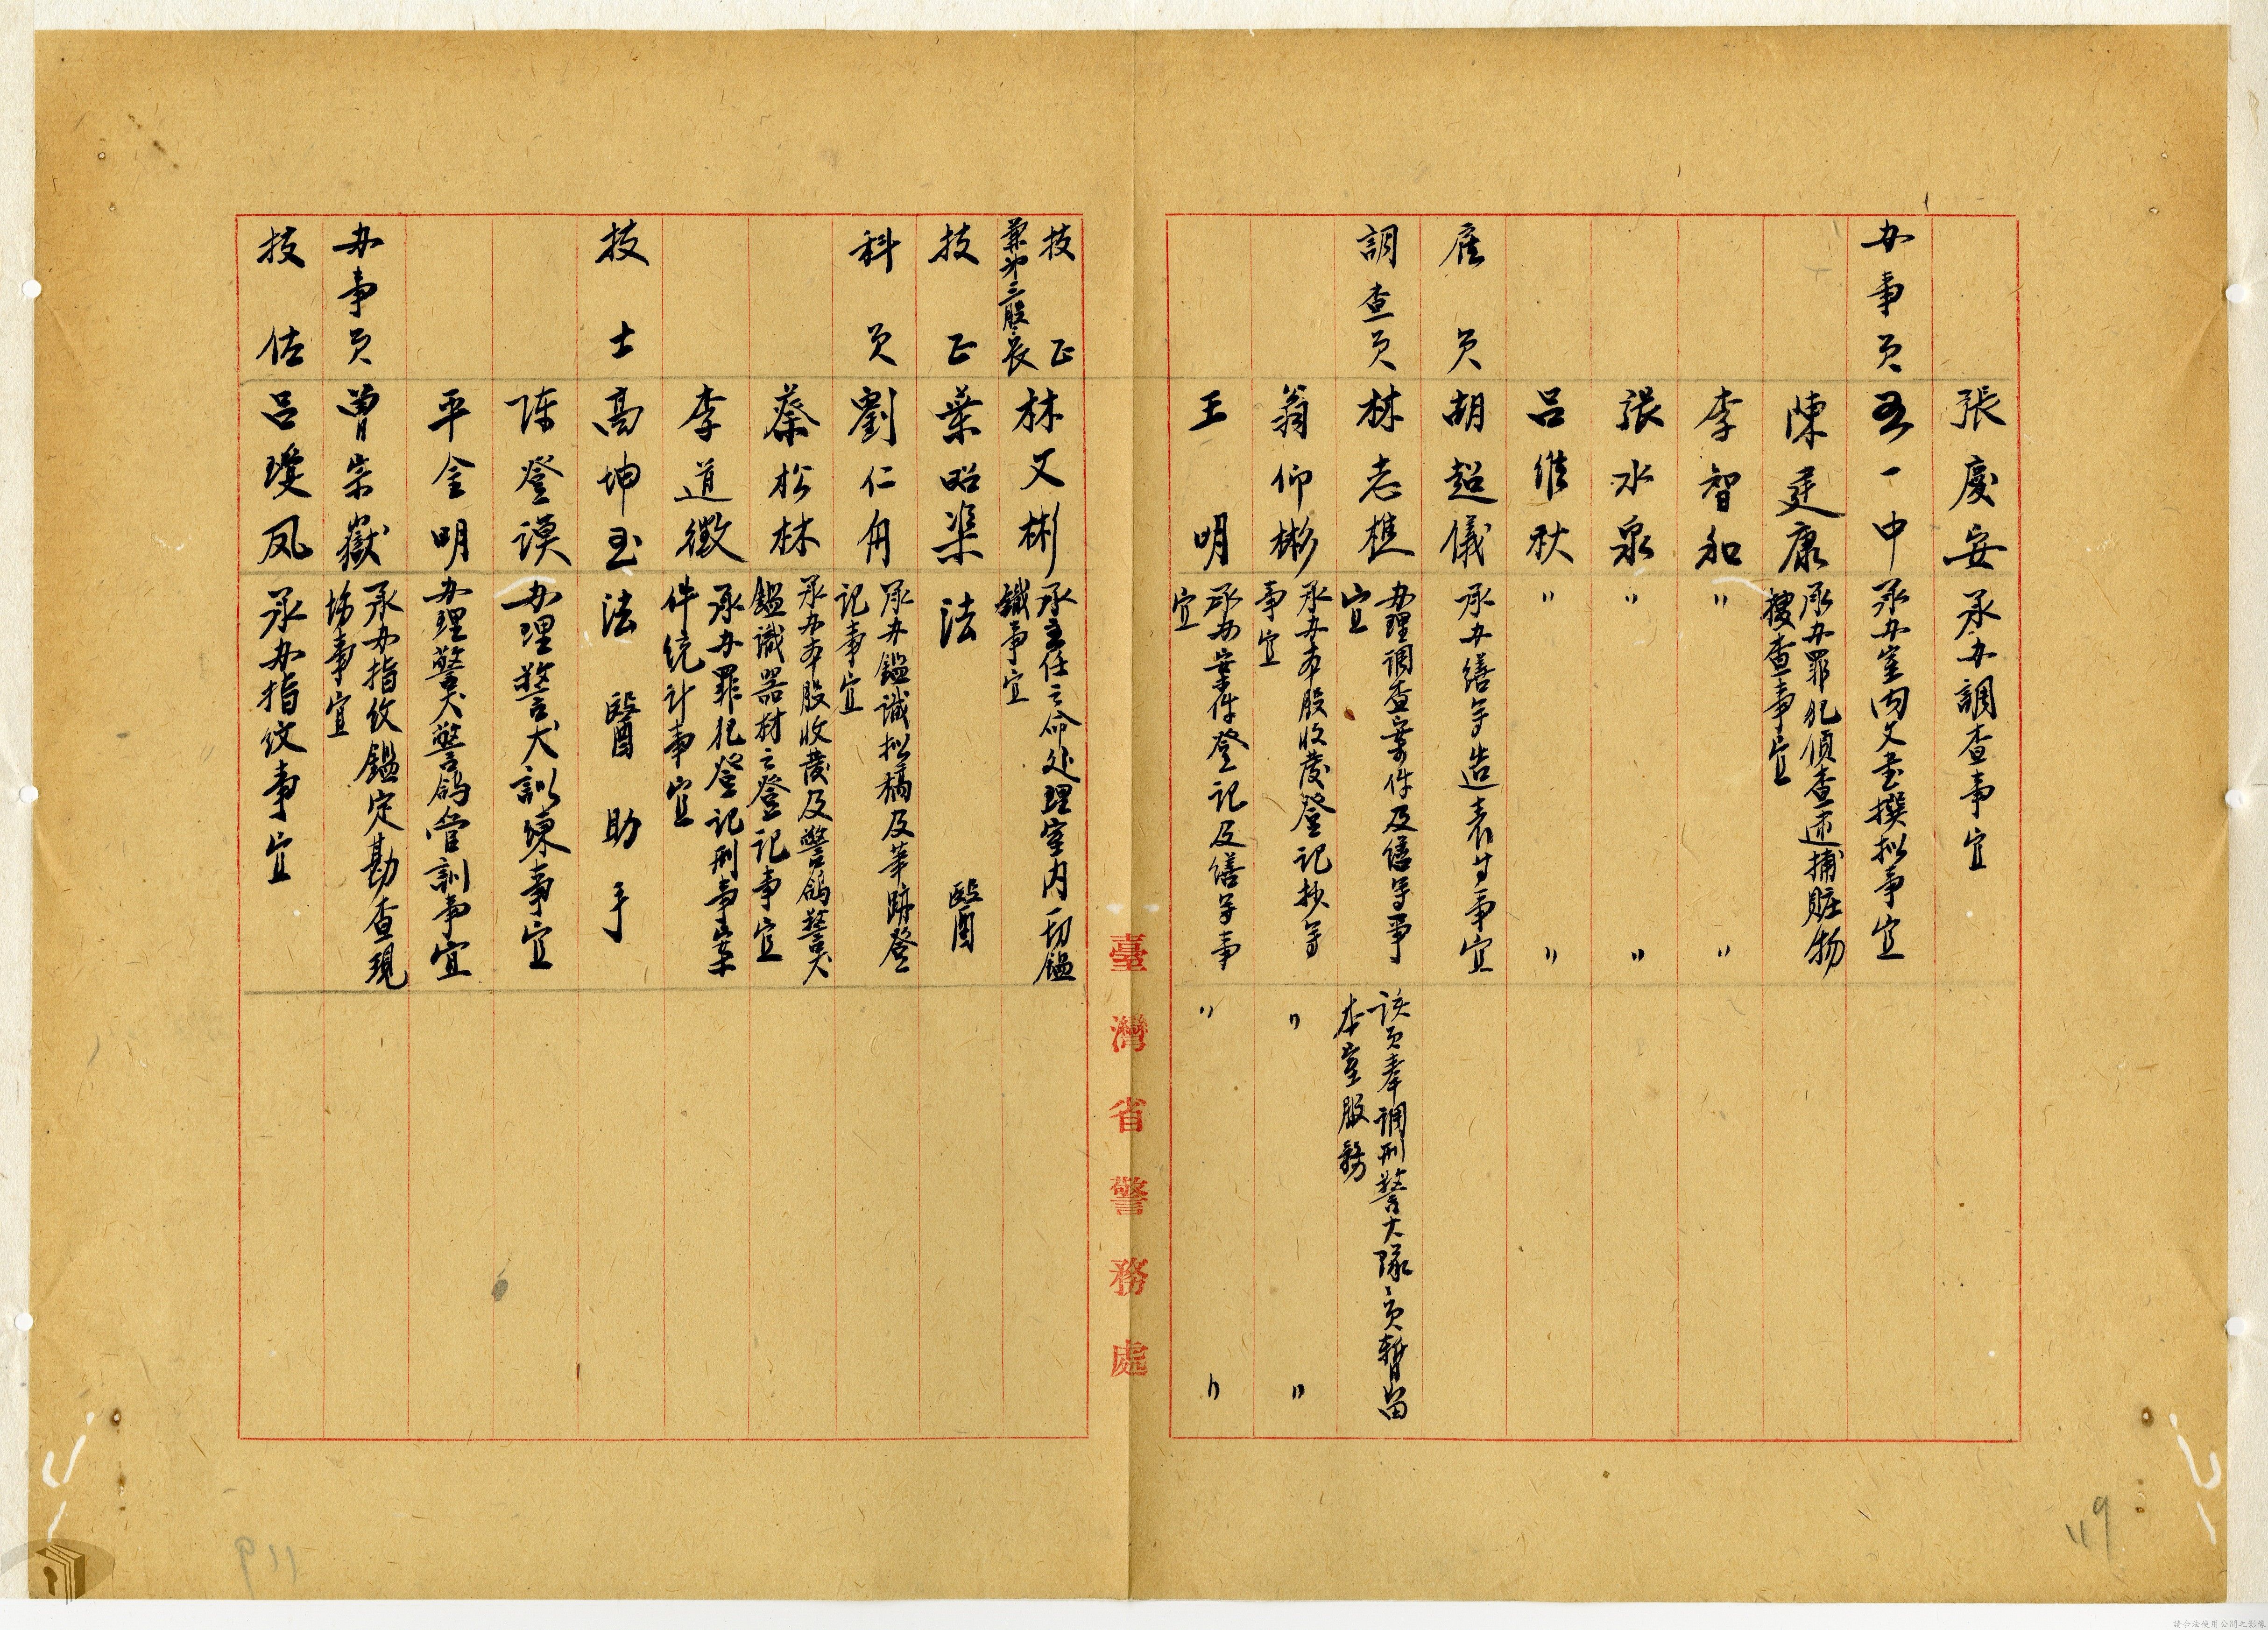 張慶安 承办調查事宜
办事員 一中 承办室內文書撰拟事宜
陳廷康 承办罪犯偵查逮捕賍物
搜查事宜
李智和 〃 〃
張水泉 〃 〃
呂維秋 〃 〃
雇員 胡超儀 承办繕写造表等事宜
調查員 林志樵 办理調查案件及繕写事
宜
該員奉調刑警大隊員暫留
本室服務
翁仰彬 承办本股收發登記抄写
事宜 〃 〃
王明 承办案件登記及繕写事
宜 〃 〃
臺灣省警務處
技正
兼第三股長
林文彬 承主任之命处理室內一切鑑
識事宜
技正 葉昭渠 法醫
科員 劉仁舟 承办鑑識拟稿及筆跡登
記事宜
蔡松林 承办本股收發及警鴿警犬
鑑識器材之登記事宜
李道徵 承办罪犯登記刑事案
件統計事宜
技士 高坤玉 法醫助手
陈登謨 办理警犬訓練事宜
平金明 办理警犬警鴿管訓事宜
办事員 曾宗嶽 承办指纹鑑定勘查現
場事宜
技佐 呂瓊凤 承办指纹事宜
119
請合法使用公開之影像